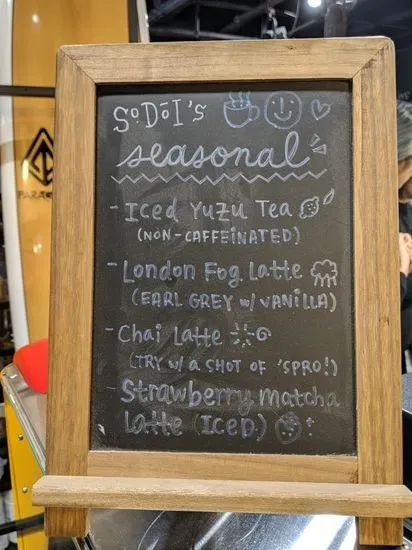 SoDoI's
seasonal
- Iced Yuzu Tea
(NON-CAFFEINATED)
- London Fog Latte
(EARL GREY w/ VANILLA)
- Chai Latte
(TRY w/ A SHOT OF 'SPRO!)
- Strawberry matcha
Latte (ICED)